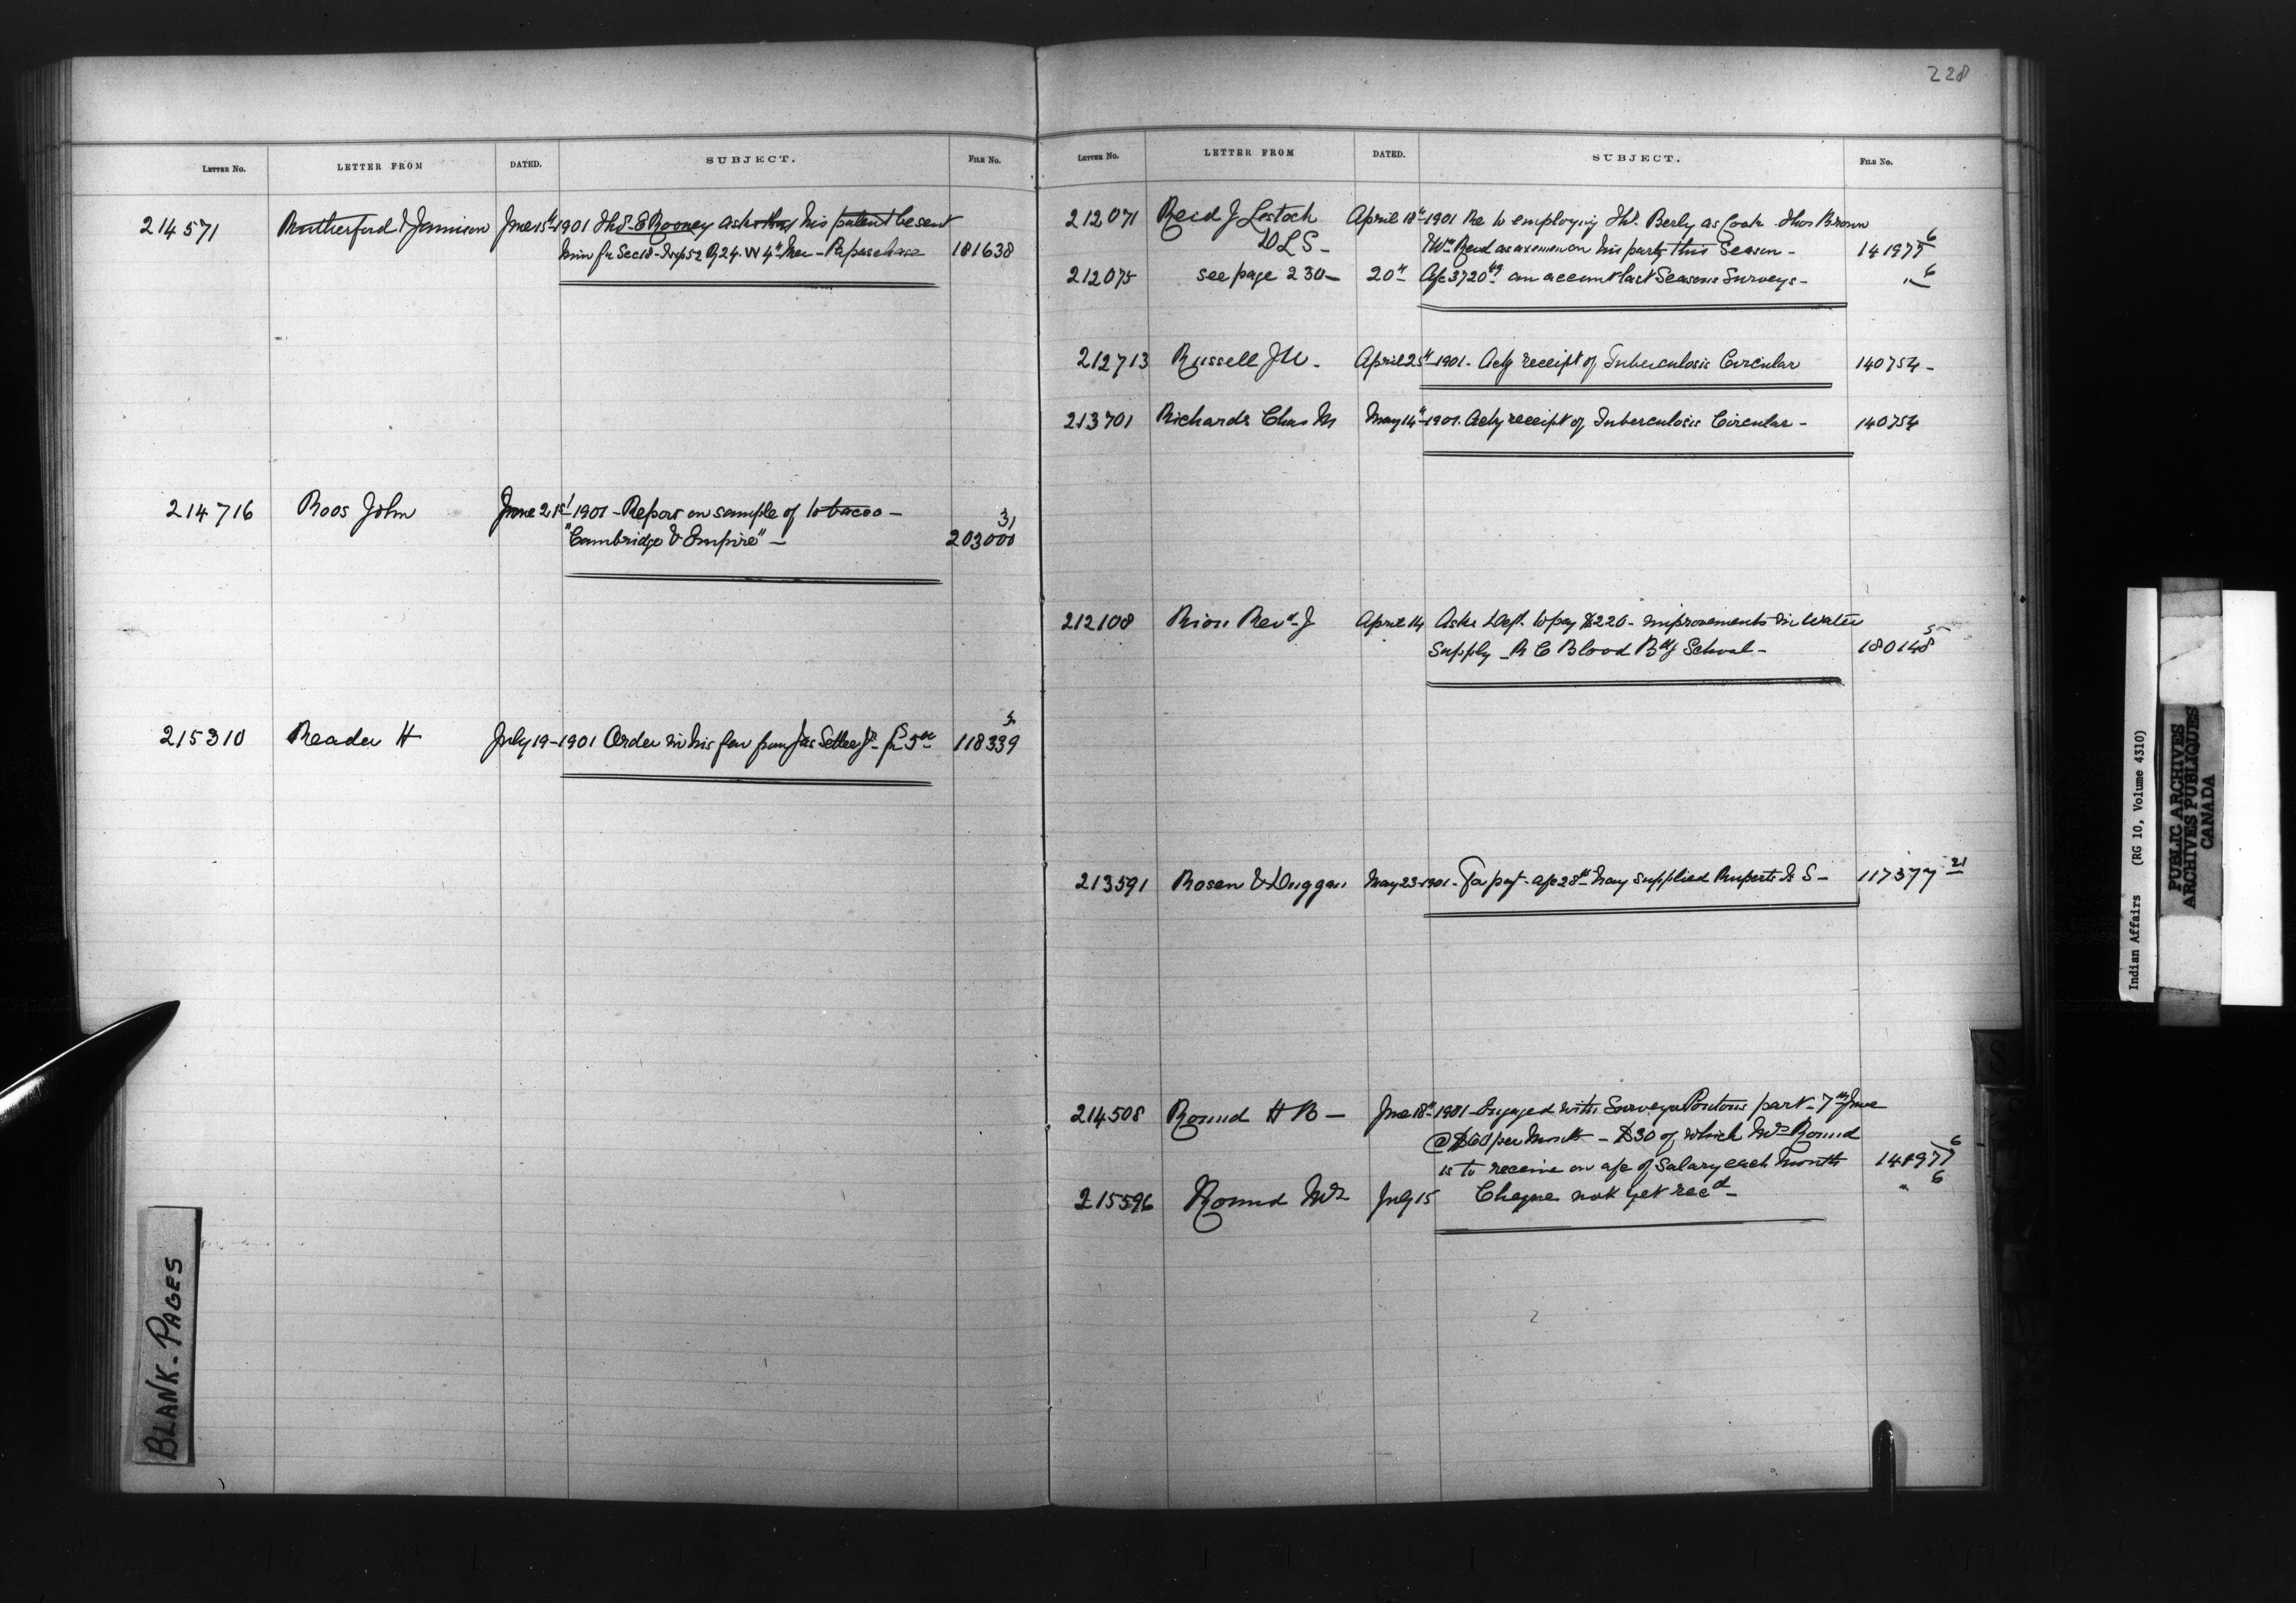 228
LETTER NO. LETTER FROM DATED. SUBJECT. FILE No.
214571 Rutherford & Jamieson June 15th 1901 Thos. E Rooney asks that his patent be sent
him fr Sec 18 - Twp 52 R 24 W 4th Mer - Papaschase 181638
214716 Roos John June 21st 1901 - Report on sample of tobacco -
"Cambridge & Empire" - 203000 31
215310 Reader H July 19 - 1901 Order in his fav from Jas Settee Jr fr 5.00 118339 5
LETTER NO. LETTER FROM DATED. SUBJECT. FILE No.
212071 Reid J Lestock April 18th 1901 Re to employing Thos. Berly as Cook Thos Brown
DLS - & Wm Reid as axemen on his party this Season - 141977 6
212075 see page 230 - 20th A/c 3720 on account last Seasons Surveys - " 6
212713 Russell J April 25th 1901 - Ackg receipt of Tuberculosis Circular 140754 -
213701 Richards Chas M May 14th 1901. Ackg receipt of Tuberculosis Circular - 140754
212108 Riou Revd J April 14 Asks Dept. to pay $220 - improvements in Water
Supply - R C Blood Bdg School - 180148 5
213591 Rosen & Duggan May 23 - 1901 - For payt - a/c 28th May supplied Ruperts Ld S - 117377 21
214508 Round H B - June 18th 1901 - Engaged with Surveyor Pontons part - 7th June
@ $60 per Month - $30 of which Mrs Round
is to receive on a/c of Salary each Month 141977 6
215596 Round Mrs July 15 Cheque not yet recd - " 6
BLANK - PAGES
Indian Affairs (RG 10, Volume 4310)
PUBLIC ARCHIVES
ARCHIVES PUBLIQUES
CANADA